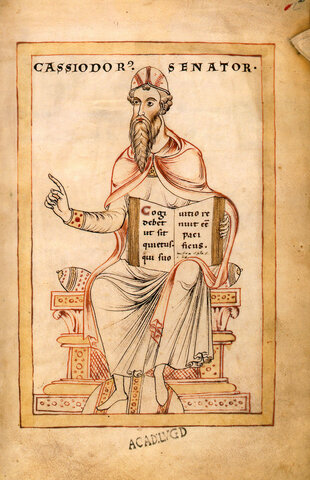 CASSIODORꝰ. SENATOR.
Cogi
debet
ut sit
quietus.
qui suo
uitio re
nuit eē
paci
ficus.
ACAD.LVGD